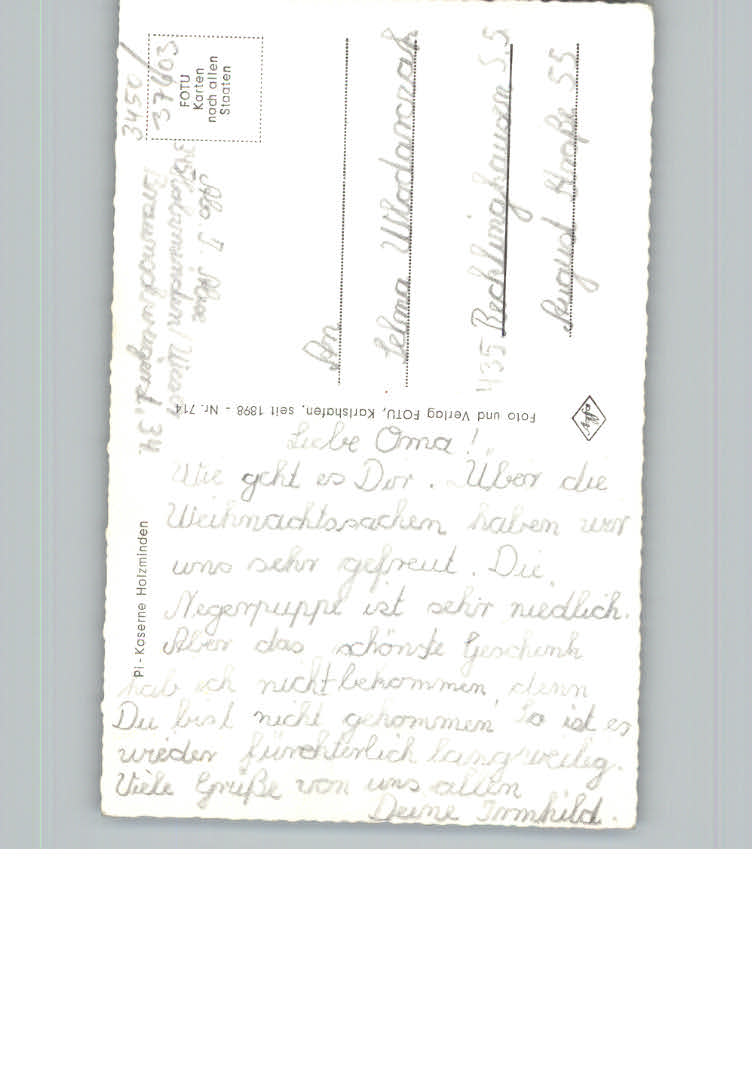 Liebe Oma!
Wie geht es Dir. Über die
Weihnachtssachen haben wir
uns sehr gefreut. Die
Negerpuppe ist sehr niedlich.
Aber das schönste Geschenk
hab ich nicht bekommen, denn
Du bist nicht gekommen So ist es
wieder fürchterlich langweilig.
Viele Grüße von uns allen
Deine Irmhild.
Pi-Kaserne Holzminden
Foto und Verlag FOTU, Karlshafen, seit 1898 - Nr. 714
Agfa
FOTU
Karten
nach allen
Staaten
3450/
37603
An
Selma Wlodarczak
435 Recklinghausen S.5
August Straße 55
Abs. I.
34.